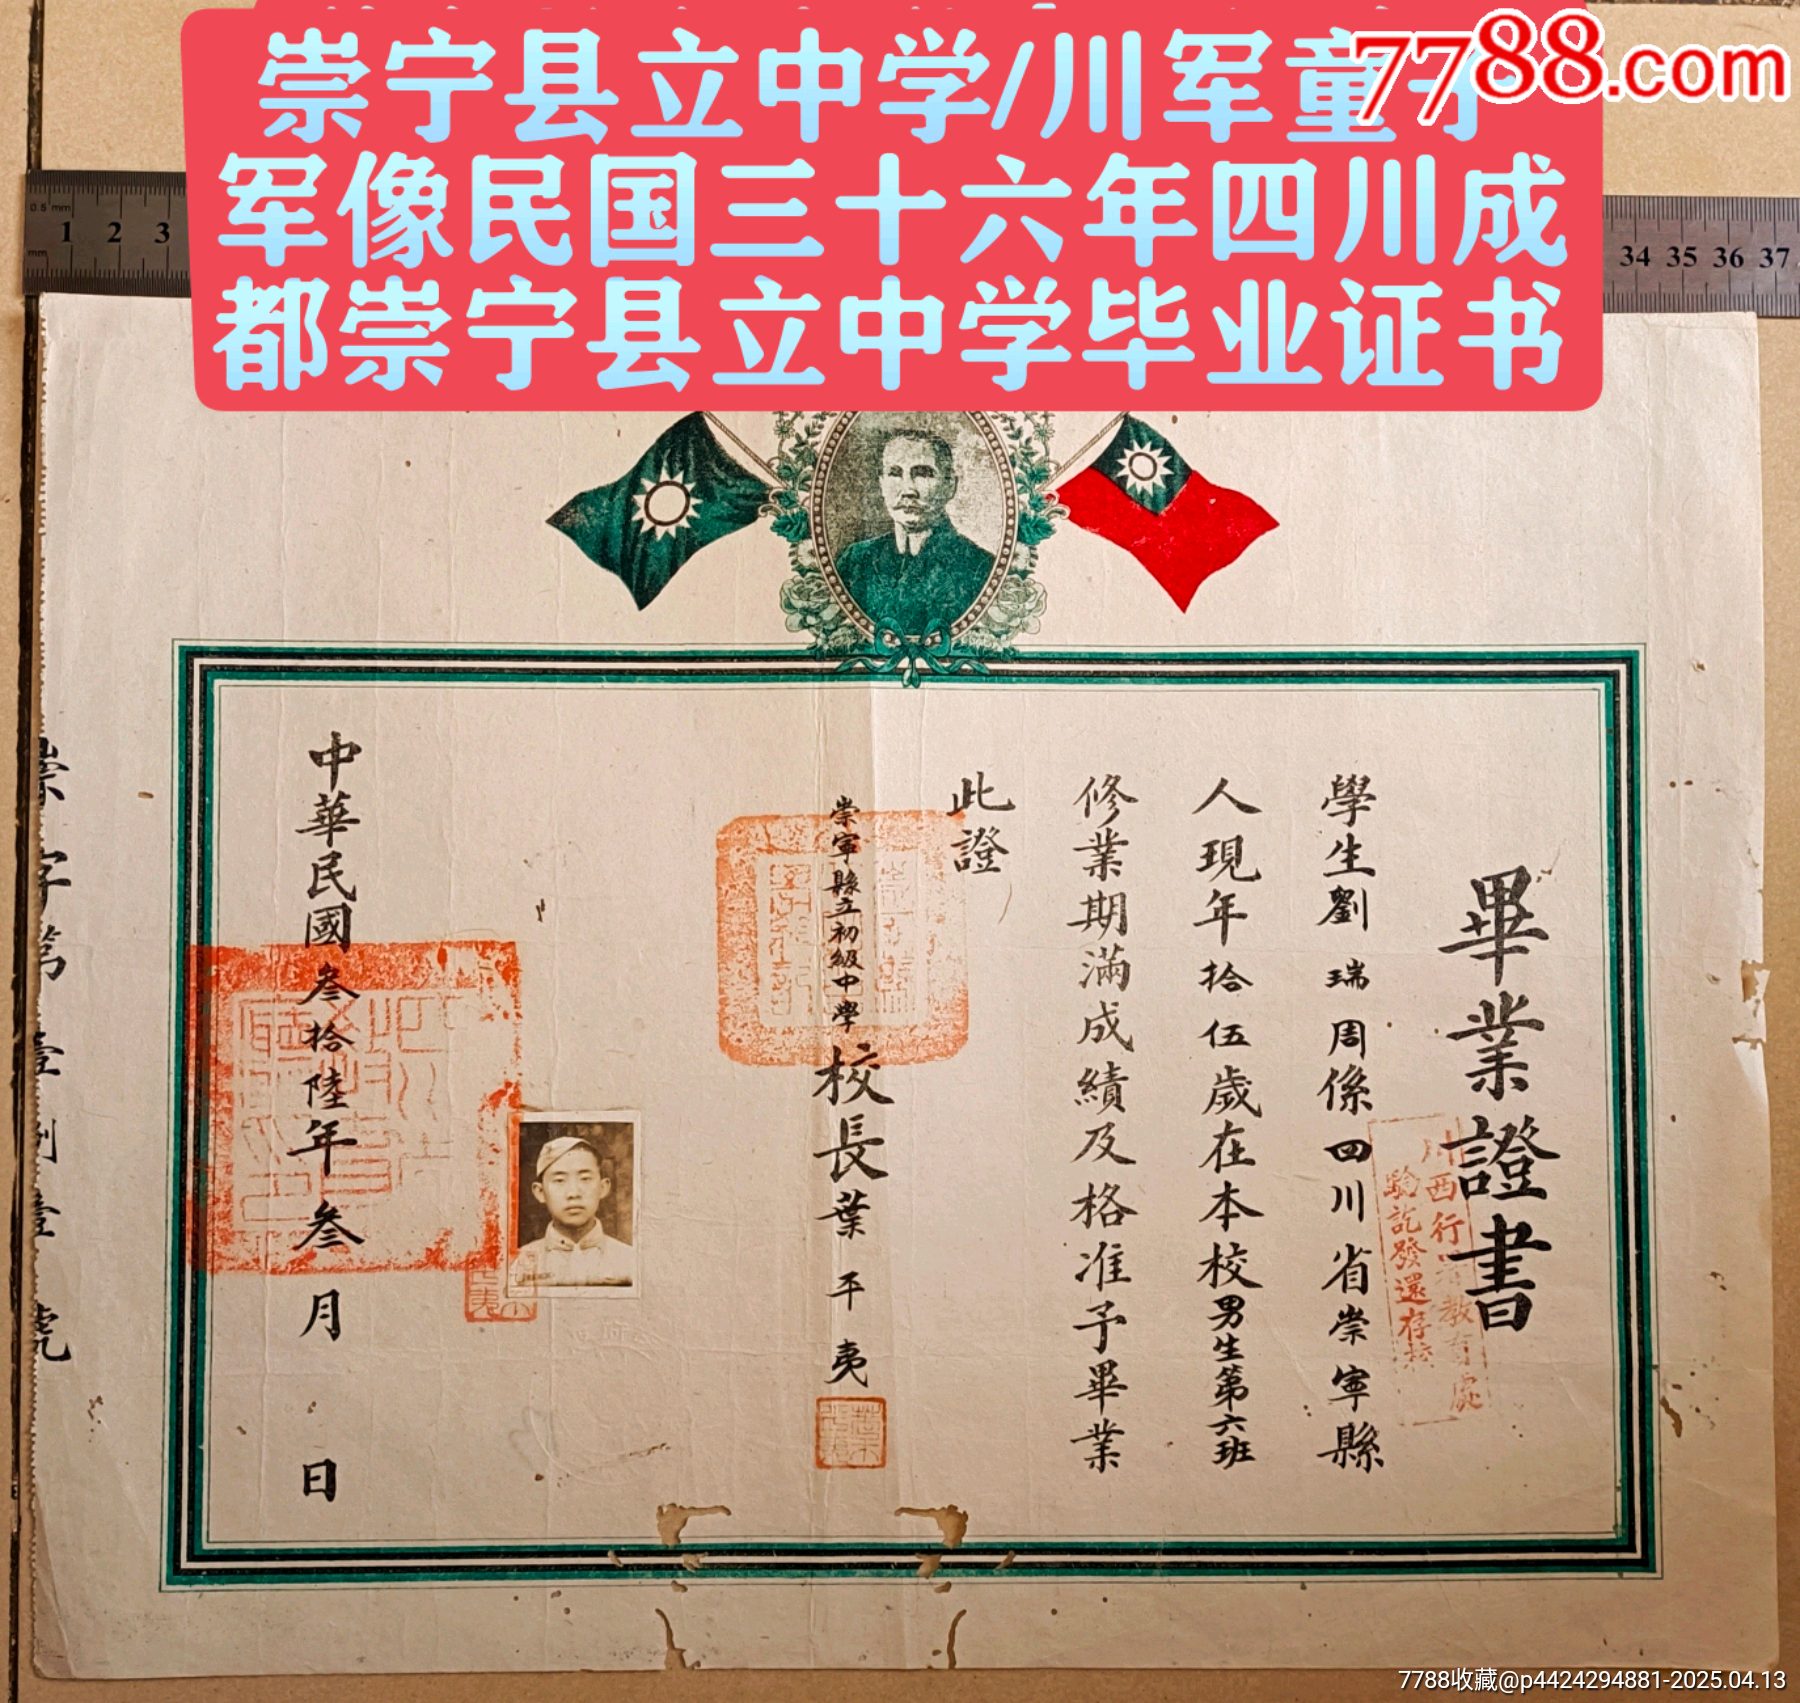 崇宁县立中学/川军童子
军像民国三十六年四川成
都崇宁县立中学毕业证书
7788.com
0.5 mm
1 2 3
mm
34 35 36 37
畢業證書
學生劉瑞周係四川省崇寧縣
人現年拾伍歲在本校男生第六班
修業期滿成績及格准予畢業
此證
崇寧縣立初級中學校長葉平夷
中華民國叁拾陸年叁月 日
川西行 教育處
驗訖發還存
字第壹 壹號
7788收藏@p4424294881-2025.04.13